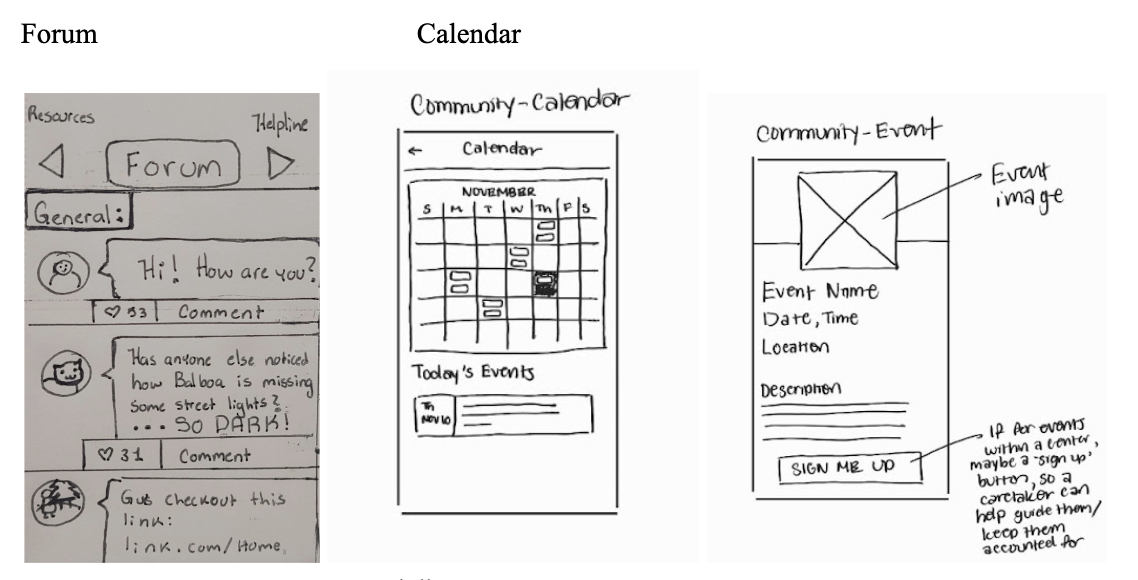 Forum
Calendar
Resources
Helpline
Forum
General:
Hi! How are you?
♡ 53
Comment
Has anyone else noticed
how Balboa is missing
some street lights?
... SO DARK!
♡ 31
Comment
Gus checkout this
link:
link.com/Home.
Community-Calendar
← Calendar
NOVEMBER
S M T W Th F S
Today's Events
Th
NOV 10
Community-Event
Event
image
Event Name
Date, Time
Location
Description
SIGN ME UP
If for events
within a center,
maybe a 'sign up'
button, so a
caretaker can
help guide them/
keep them
accounted for